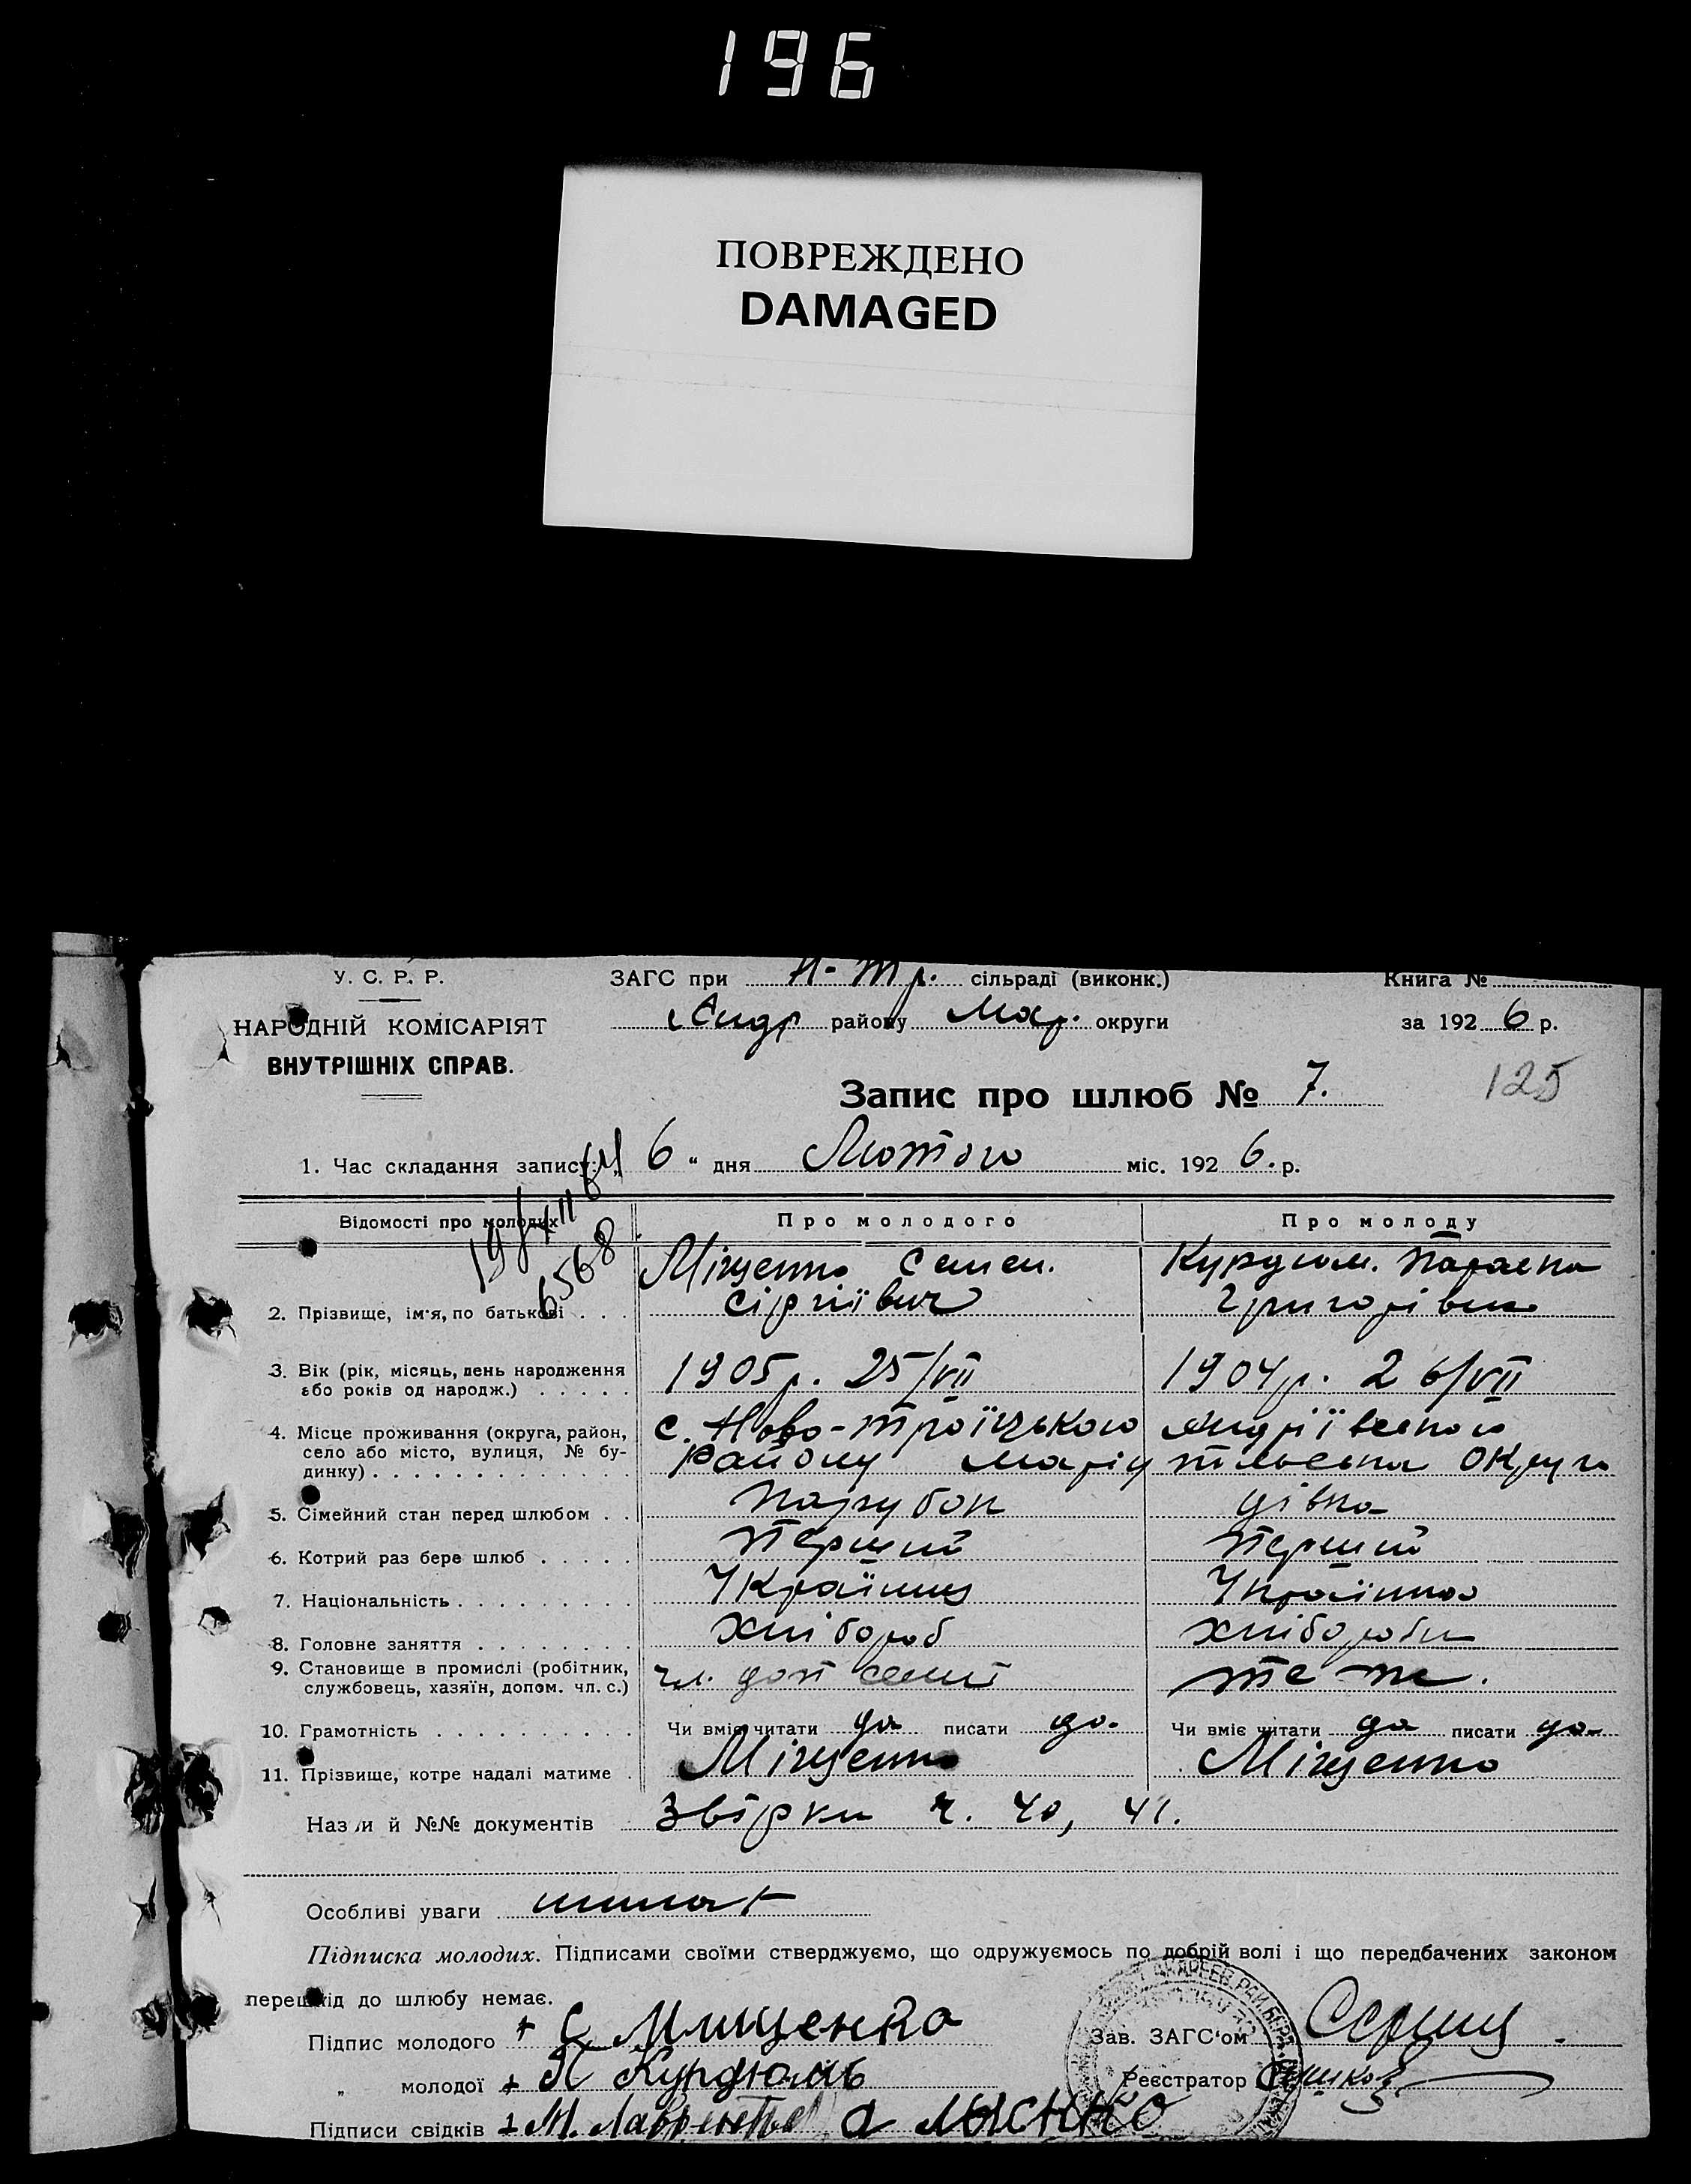 196
ПОВРЕЖДЕНО
DAMAGED
У. С. Р. Р.
ЗАГС при Н-Тр. сільраді (виконк.)
Книга №
НАРОДНІЙ КОМІСАРІЯТ
Андр району Мар. округи
за 1926 р.
ВНУТРІШНІХ СПРАВ.
Запис про шлюб № 7.
125
1. Час складання запису: „6“ дня Лютого міс. 1926. р.
19/XII 64
6568
Відомості про молодих
Про молодого
Про молоду
2. Прізвище, ім'я, по батькові . . .
Міщенко Семен.
Сіргіївич
Курдюм. Параска
Григорівна
3. Вік (рік, місяць, день народження
або років од народж.) . . . . .
1905 р. 25/VII
1904 р. 26/VII
4. Місце проживання (округа, район,
село або місто, вулиця, № бу-
динку) . . . . . . . . . . . . .
с. Ново-Троїцького Андріївского
Району Маріупільська Округа
5. Сімейний стан перед шлюбом . .
парубок
дівка
6. Котрий раз бере шлюб . . . . .
перший
перший
7. Національність . . . . . . . . .
Українец
Українка
8. Головне заняття . . . . . . . .
хлібороб
хлібороб
9. Становище в промислі (робітник,
службовець, хазяїн, допом. чл. с.)
чл. доп семї
те же.
10. Грамотність . . . . . . . . . .
Чи вміє читати да писати да.
Чи вміє читати да писати да
11. Прізвище, котре надалі матиме .
Міщенко
Міщенко
Назви й №№ документів
Звірки ч. 40, 41.
Особливі уваги
Підписка молодих. Підписами своїми стверджуємо, що одружуємось по добрій волі і що передбачених законом
перешкід до шлюбу немає.
Підпис молодого + С Мищенко
Зав. ЗАГС'ом
„ молодої + П Курдюмъ
Реєстратор
Підписи свідків + М. Лаврентьев а лысенко